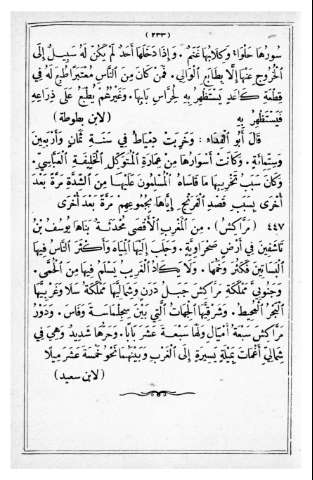 (٢٣٣)
سُورُهَا حَلْوَاءُ وَكِلَابُهَا غَنَمٌ . وَإِذَا دَخَلَهَا أَحَدٌ لَمْ يَكُنْ لَهُ سَبِيلٌ إِلَى
ٱلْخُرُوجِ عَنْهَا إِلَّا بِطَابَعِ ٱلْوَالِي . فَمَنْ كَانَ مِنَ ٱلنَّاسِ مُعْتَبَرًا طُبِعَ لَهُ فِي
قِطْعَةِ كَاغَدٍ يَسْتَظْهِرُ بِهِ لِحُرَّاسِ بَابِهَا . وَغَيْرُهُمْ يُطْبَعُ عَلَى ذِرَاعِهِ
فَيَسْتَظْهِرُ بِهِ (لابن بطوطة)
قَالَ أَبُو ٱلْفِدَاء : وَخَرِبَتْ دِمْيَاطُ فِي سَنَةِ ثَمَانٍ وَأَرْبَعِينَ
وَسِتِّمِائَةٍ . وَكَانَتْ أَسْوَارُهَا مِنْ عِمَارَةِ ٱلْمُتَوَكِّلِ ٱلْخَلِيفَةِ ٱلْعَبَّاسِيِّ .
وَكَانَ سَبَبُ تَخْرِيبِهَا مَا قَاسَاهُ ٱلْمُسْلِمُونَ عَلَيْهَا مِنَ ٱلشِّدَّةِ مَرَّةً بَعْدَ
أُخْرَى بِسَبَبِ قَصْدِ ٱلْفَرَنْجِ إِيَّاهَا بِجُمُوعِهِمْ مَرَّةً بَعْدَ أُخْرَى
٤٤٧ (مَرَّاكِش) . مِنَ ٱلْمَغْرِبِ ٱلْأَقْصَى مُحْدَثَةٌ بَنَاهَا يُوسُفُ بْنُ
تَاشَفِينَ فِي أَرْضٍ صَحْرَاوِيَّةٍ . وَجَلَبَ إِلَيْهَا ٱلْمِيَاهَ وَأَكْثَرَ ٱلنَّاسُ فِيهَا
ٱلْبَسَاتِينَ فَكَثُرَ وَخَمُهَا . وَلَا يَكَادُ ٱلْغَرِيبُ يَسْلَمُ فِيهَا مِنَ ٱلْحُمَّى .
وَجَنُوبِيَّ مَمْلَكَةِ مَرَّاكِشَ جَبَلُ دَرَنَ وَشِمَالِيَّهَا مَمْلَكَةُ سَلَا وَغَرْبِيَّهَا
ٱلْبَحْرُ ٱلْمُحِيطُ . وَشَرْقِيَّهَا ٱلْجِهَاتُ ٱلَّتِي بَيْنَ سِجِلْمَاسَةَ وَفَاسَ . وَدَوْرُ
مَرَّاكِشَ سَبْعَةُ أَمْيَالٍ وَلَهَا سَبْعَةَ عَشَرَ بَابًا . وَحَرُّهَا شَدِيدٌ وَهِيَ فِي
شِمَالِيِّ أَغْمَاتَ بِمَيْلَةٍ يَسِيرَةٍ إِلَى ٱلْغَرْبِ وَبَيْنَهُمَا نَحْوُ خَمْسَةَ عَشَرَ مِيلًا
(لابن سعيد)